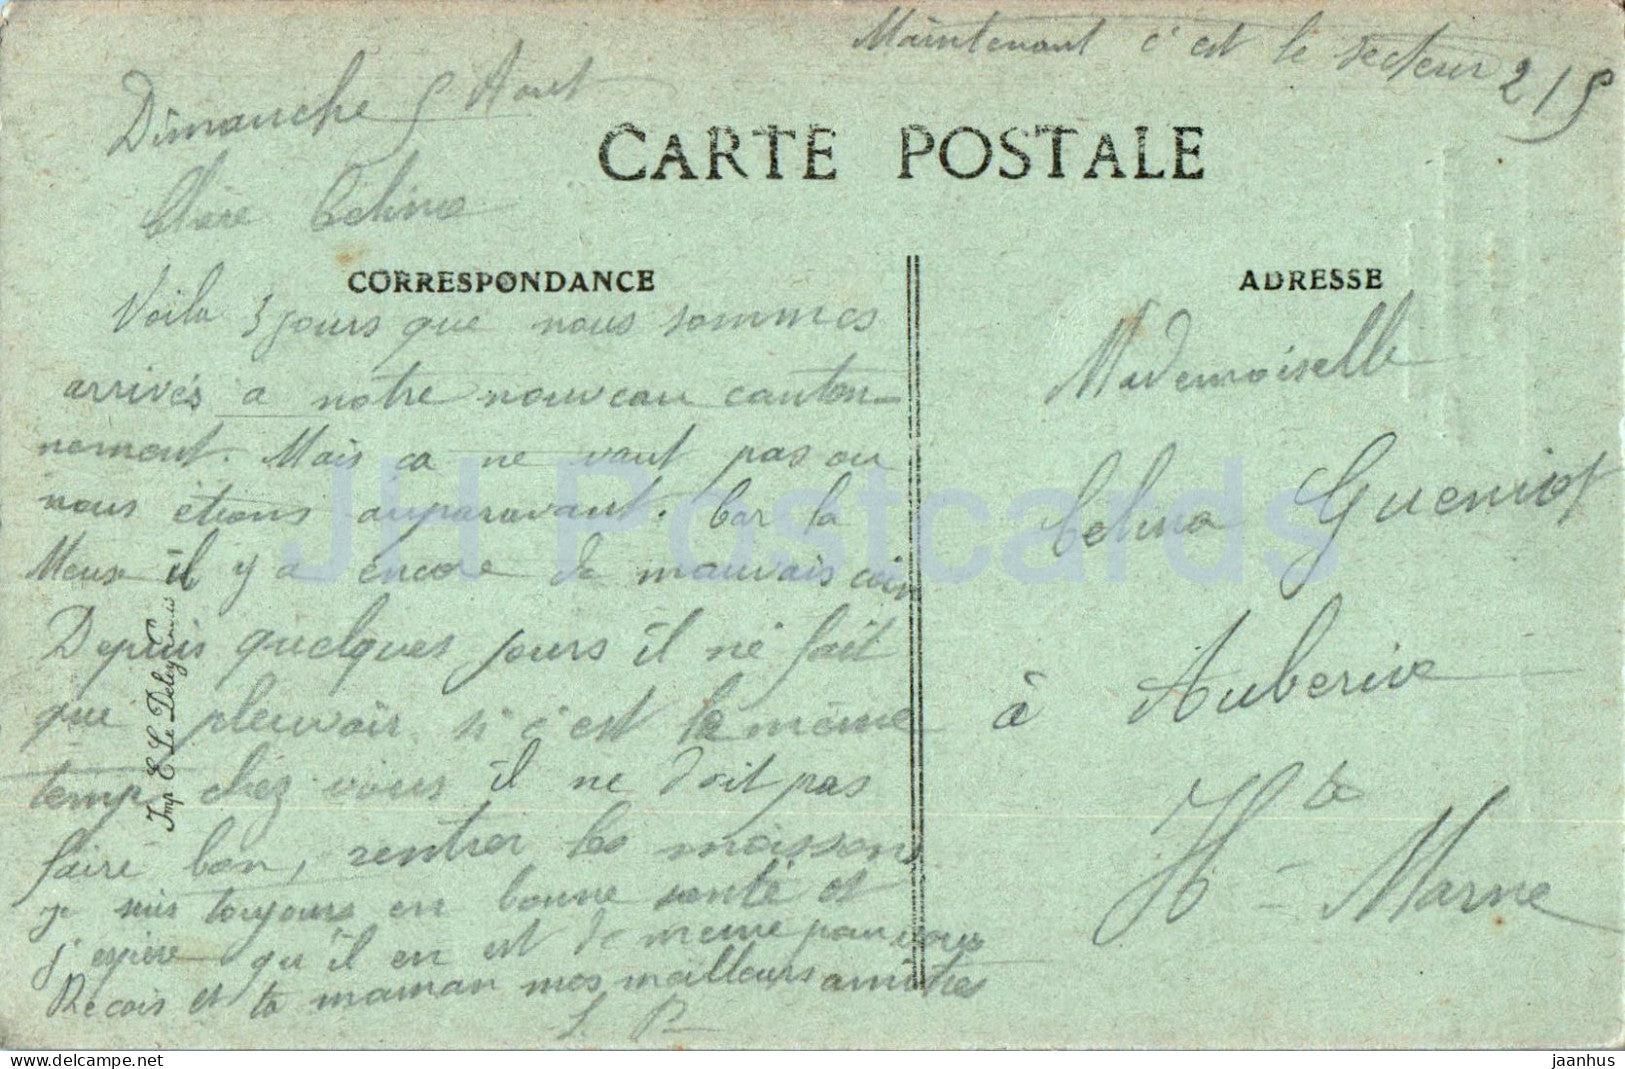 Maintenant c'est le secteur 215
Dimanche 5 Aout
CARTE POSTALE
Chère Celina
CORRESPONDANCE
Voila 3 jours que nous sommes
arrivés a notre nouveau canton-
nement. Mais ca ne vaut pas ou
nous étions auparavant. Car la
Meuse il y a encore de mauvais coin
Depuis quelques jours il ne fait
que pleuvoir, si c'est le même
temps chez vous il ne doit pas
faire bon, rentrer les moissons
je suis toujours en bonne santé et
j'espère qu'il en est de meme pour vous
Recois et ta maman mes meilleurs amitiés
L P
Imp E Le Deley Paris
ADRESSE
Mademoiselle
Celina Gueniot
à Auberive
Hte
H - Marne
JH Postcards
jaanhus @ delcampe.net